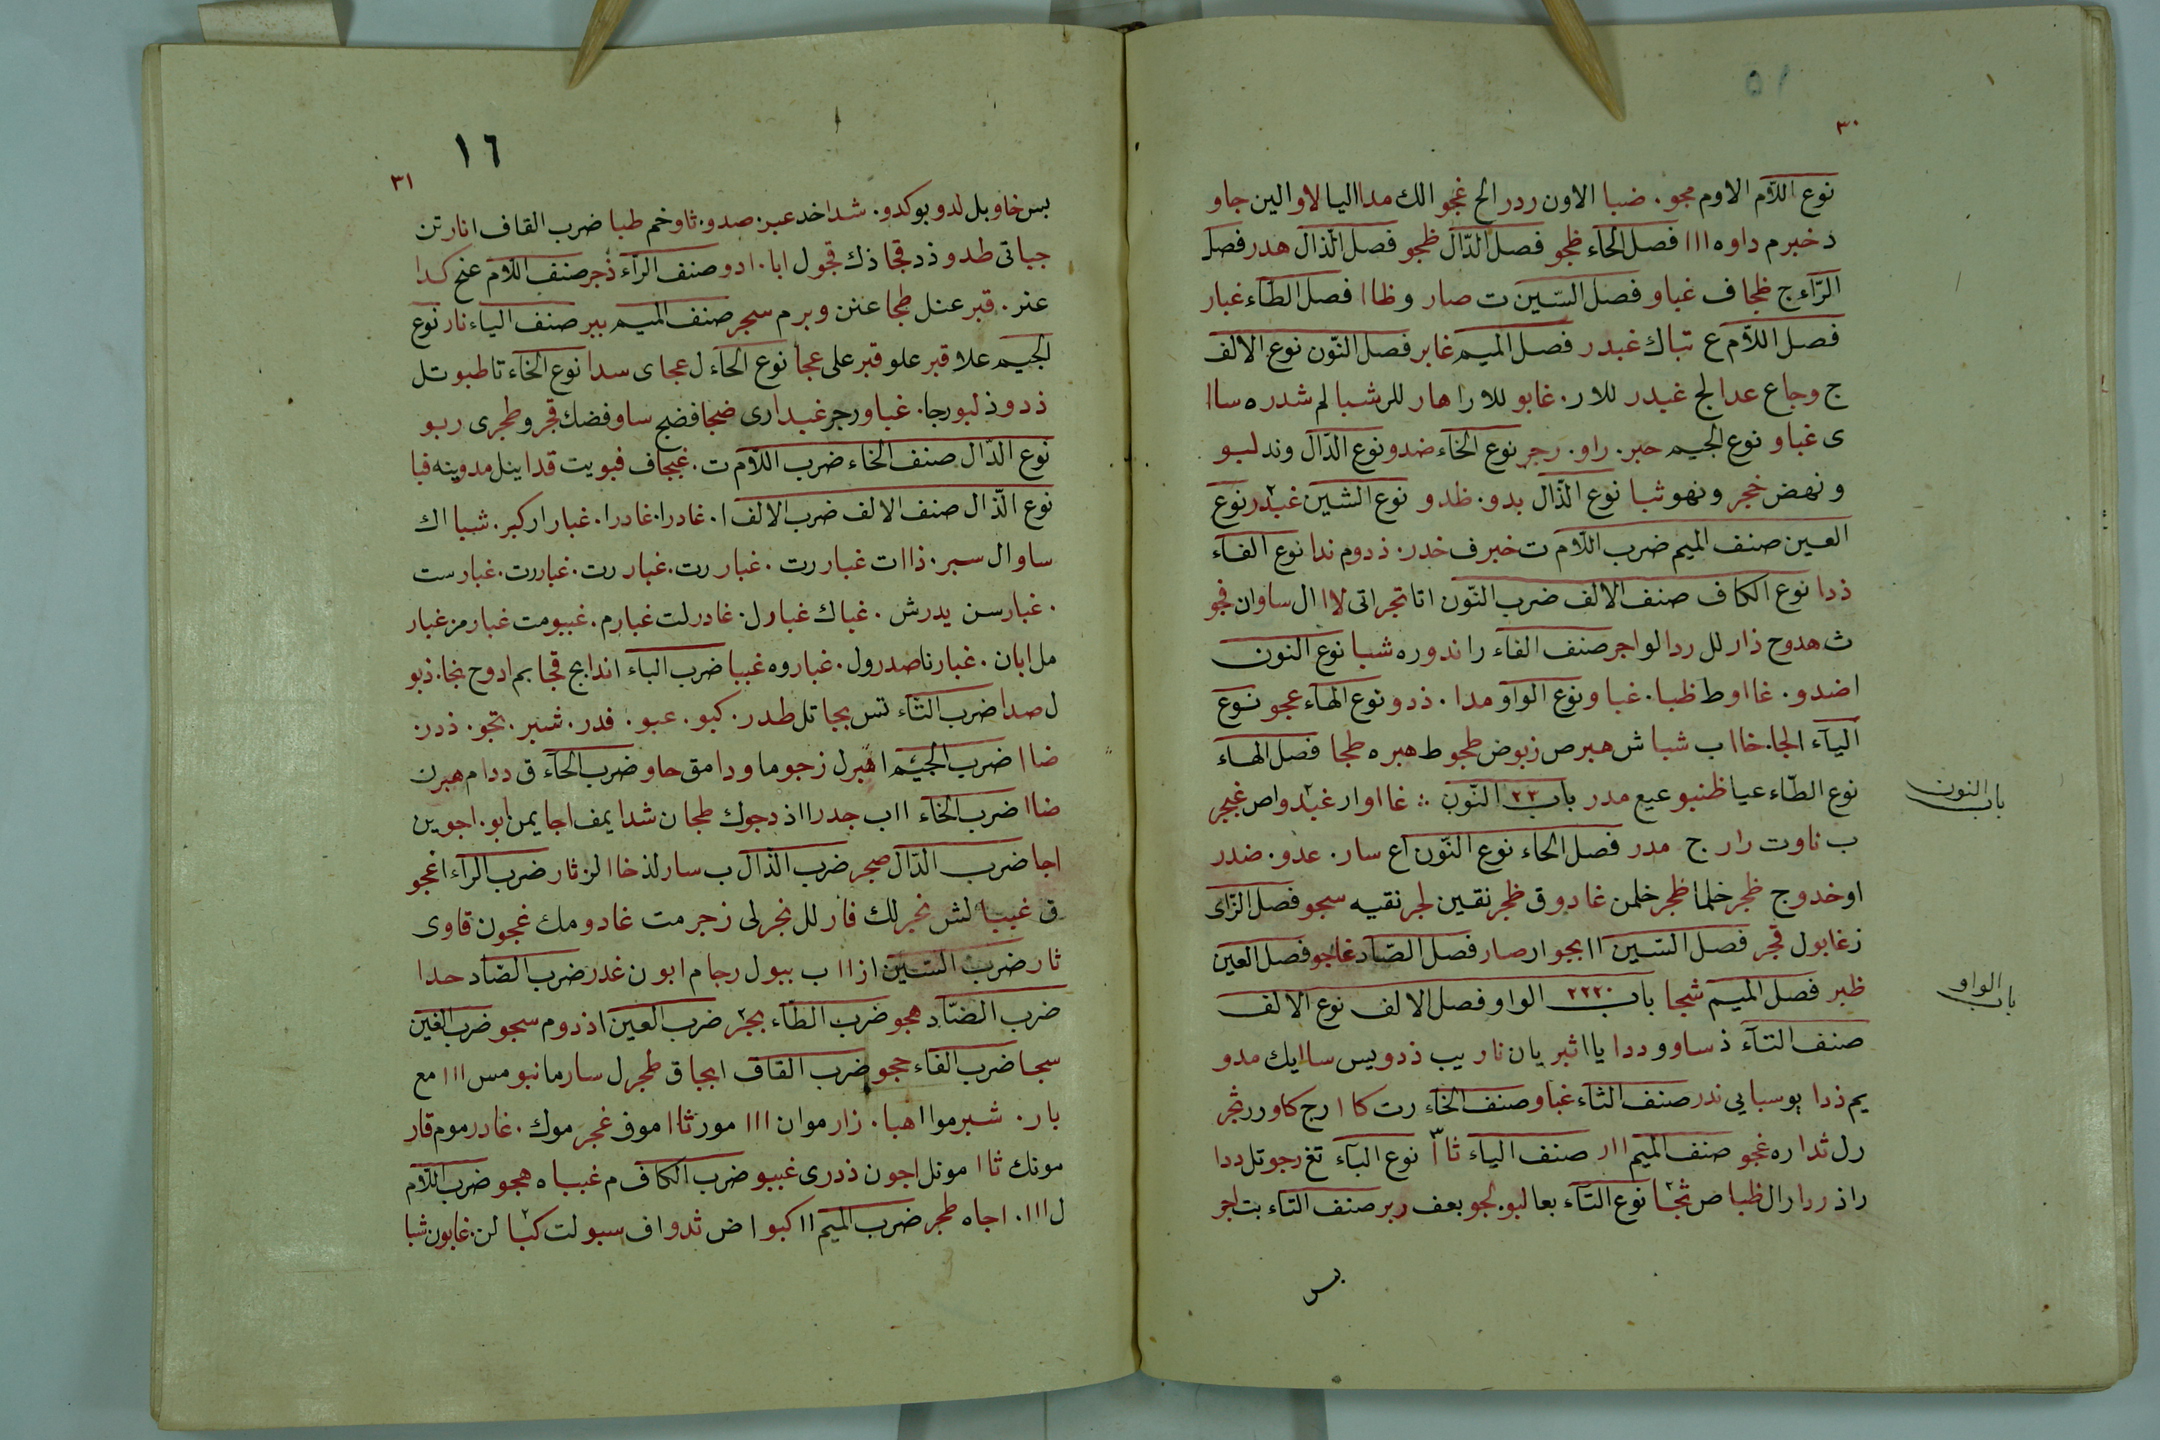 ٥١
٣٠
نوع اللام الاوم مجو. ضبا الاون ردر الح غجو الك مدا اليا لاو الين جاو
د خبرم داوه ااا فصل الحاء ظجو فصل الدّال ظجو فصل الذال هدر فصل
الرّاء ج ظجا ف غباو فصل السّين ت صار وظاا فصل الطاء غبار
فصل اللّام ع تباك غبدر فصل الميم غابر فصل النّون نوع الالف
ج وجاع عدا لج غبدر للار. غابو للا را هار للر شبا لم شدره ساا
ى غباو نوع الجيم حبر. راو. رجر نوع الخاء ضدو نوع الدّال وند لبو
ونهض خجر ونهو شبا نوع الذّال بدو. ظدو نوع الشين غبدر نوع
العين صنف الميم ضرب اللام ت خبر ف خدر. ذ دوم ندا نوع الفاء
ذدا نوع الكاف صنف الالف ضرب النّون اتا تجر اتى لاا ال ساو ان فجو
ث هدوح ذار لل ردا لو اجر صنف الفاء را ندوره شبا نوع النون
اضدو. غااوط ظبا. غباو نوع الواو مدا. ذدو نوع الهاء عجو نوع
الياء الجا. خاا ب شبا ش هبر ص زبوض طجوط هبره طجا فصل الهاء
نوع الطّاء عيا ظنبو عيع مدر باب ٢٢ النّون ؞ غااوار غبدواص غبجر
ب ناوت رار ج مدر فصل الحاء نوع النّون اع سار. عدو. ضدر
اوخدوج ظجر خلما ظجر خلمن غادوق ظجر نقين لجر نقيه سجو فصل الزاى
زغابول قجر فصل السّين اابجوار صار فصل الصّاد غابجو فصل العين
ظبر فصل الميم شجا باب ٢٢٢٠ الواو فصل الالف نوع الالف
صنف التاء ذ ساوو ددا يا اثبر يان ناريب ذدويس ساايك مدو
يم ذدا يوسبا يى ندر صنف الثاء غباو صنف الخاء رت كا ارج كاو ررثجر
رل ثداره غجو صنف الميم اار صنف الياء ثاا نوع الباء تغ رجوتل ددا
راذ ردار ال ظباص ثجبا نوع التاء بعا لبو. لجو بعف ربر صنف التاء بت اجو
بس
باب النون
باب الواو
١٦
٣١
بس خاو بل لدو بو كدو. شدا خد عبر. صدو. ثاو خم طبا ضرب القاف انار تن
جباتى طدو ذد قجا ذك قجول ابا. ادو صنف الراء ذجر صنف اللام عنح كدا
عنر. قبر عنل طجا عنن وبرم سجر صنف الميم ببر صنف الياء نار نوع
الجيم علا قبر علو قبر على عجا نوع الحاء ل عجاى سدا نوع الخاء تا طبو تل
ذدو ذ لبورجا. غباو رجر غبدا رى ضجا فضبح ساو فضك قجر و طجرى ربو
نوع الدّال صنف الخاء ضرب اللّام ت. غبجاف فبويت قدا ينل مدو ينه فبا
نوع الذّال صنف الالف ضرب الالف ا. غادرا. غادرا. غبار اركبر. شبا اك
ساوال سبر. ذاات غبار رت. غبار رت. غبار رت. غباررت. غبارست
. غبارسن يدرش. غباك غبارل. غادرلت غبارم. غبيومت غبارمز غبار
مل ابان. غبارنا صدرول. غباروه غببا ضرب الباء اندا بج قجا بم ادوح بجا. ذبو
ل صدا ضرب الثاء تس بجبا تل طدر. كبو. عبو. فدر. شبر. تجو. ذدر.
ضاا ضرب الجيم اهبرل زجوما ودامق حاو ضرب الحاء ق ددام هبرن
ضاا ضرب الخاء ااب جدرا اذ دجوك طجان شدا يمف اجا يمن ابو. اجوين
اجا ضرب الدّال صجر ضرب الذال ب سار لذ خاا لز ثار ضرب الراء اغجو
ق غببا لش نجر لك فار لل نجر لى زجر مت غادو مك غجون قاوى
ثار ضرب السّين ازاا ب ببول رجام ابون غدر ضرب الصاد حدا
ضرب الضّاد هجو ضرب الطّاء بجر ضرب العين ا ذدوم سجو ضرب الغين
سجا ضرب الفاء حجو ضرب القاف ابجاق طجرل سار ما نبو مس ااا مع
بار. شبر موا اهبا. زار موان ااا مور ثاا موف غجر موك. غادر موم قار
مونك ثاا مونل اجون ذدرى غببو ضرب الكاف م غبباه هجو ضرب اللّام
ل ااا. اجاه طجر ضرب الميم اا كبو اض ثدواف سبولت كببا لن. غابون شبا